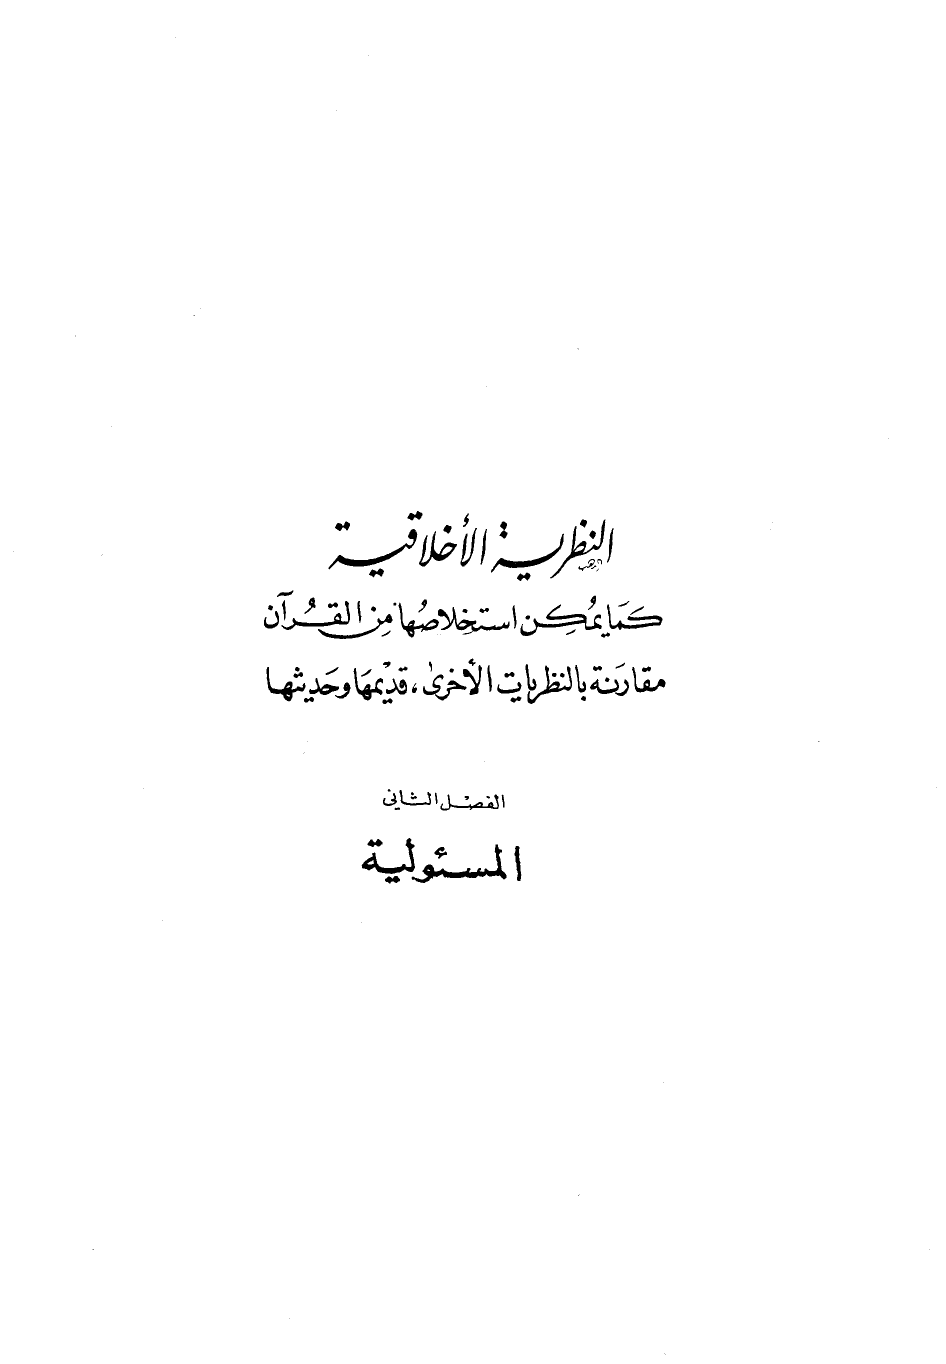 النظرية الأخلاقية
كَمَا يمُكِن استخلاصُها مِن القُرآن
مقارَنة بالنظريات الأخرىٰ، قديْمهَا وحَديثها
الفصْل الثانى
المسئولية